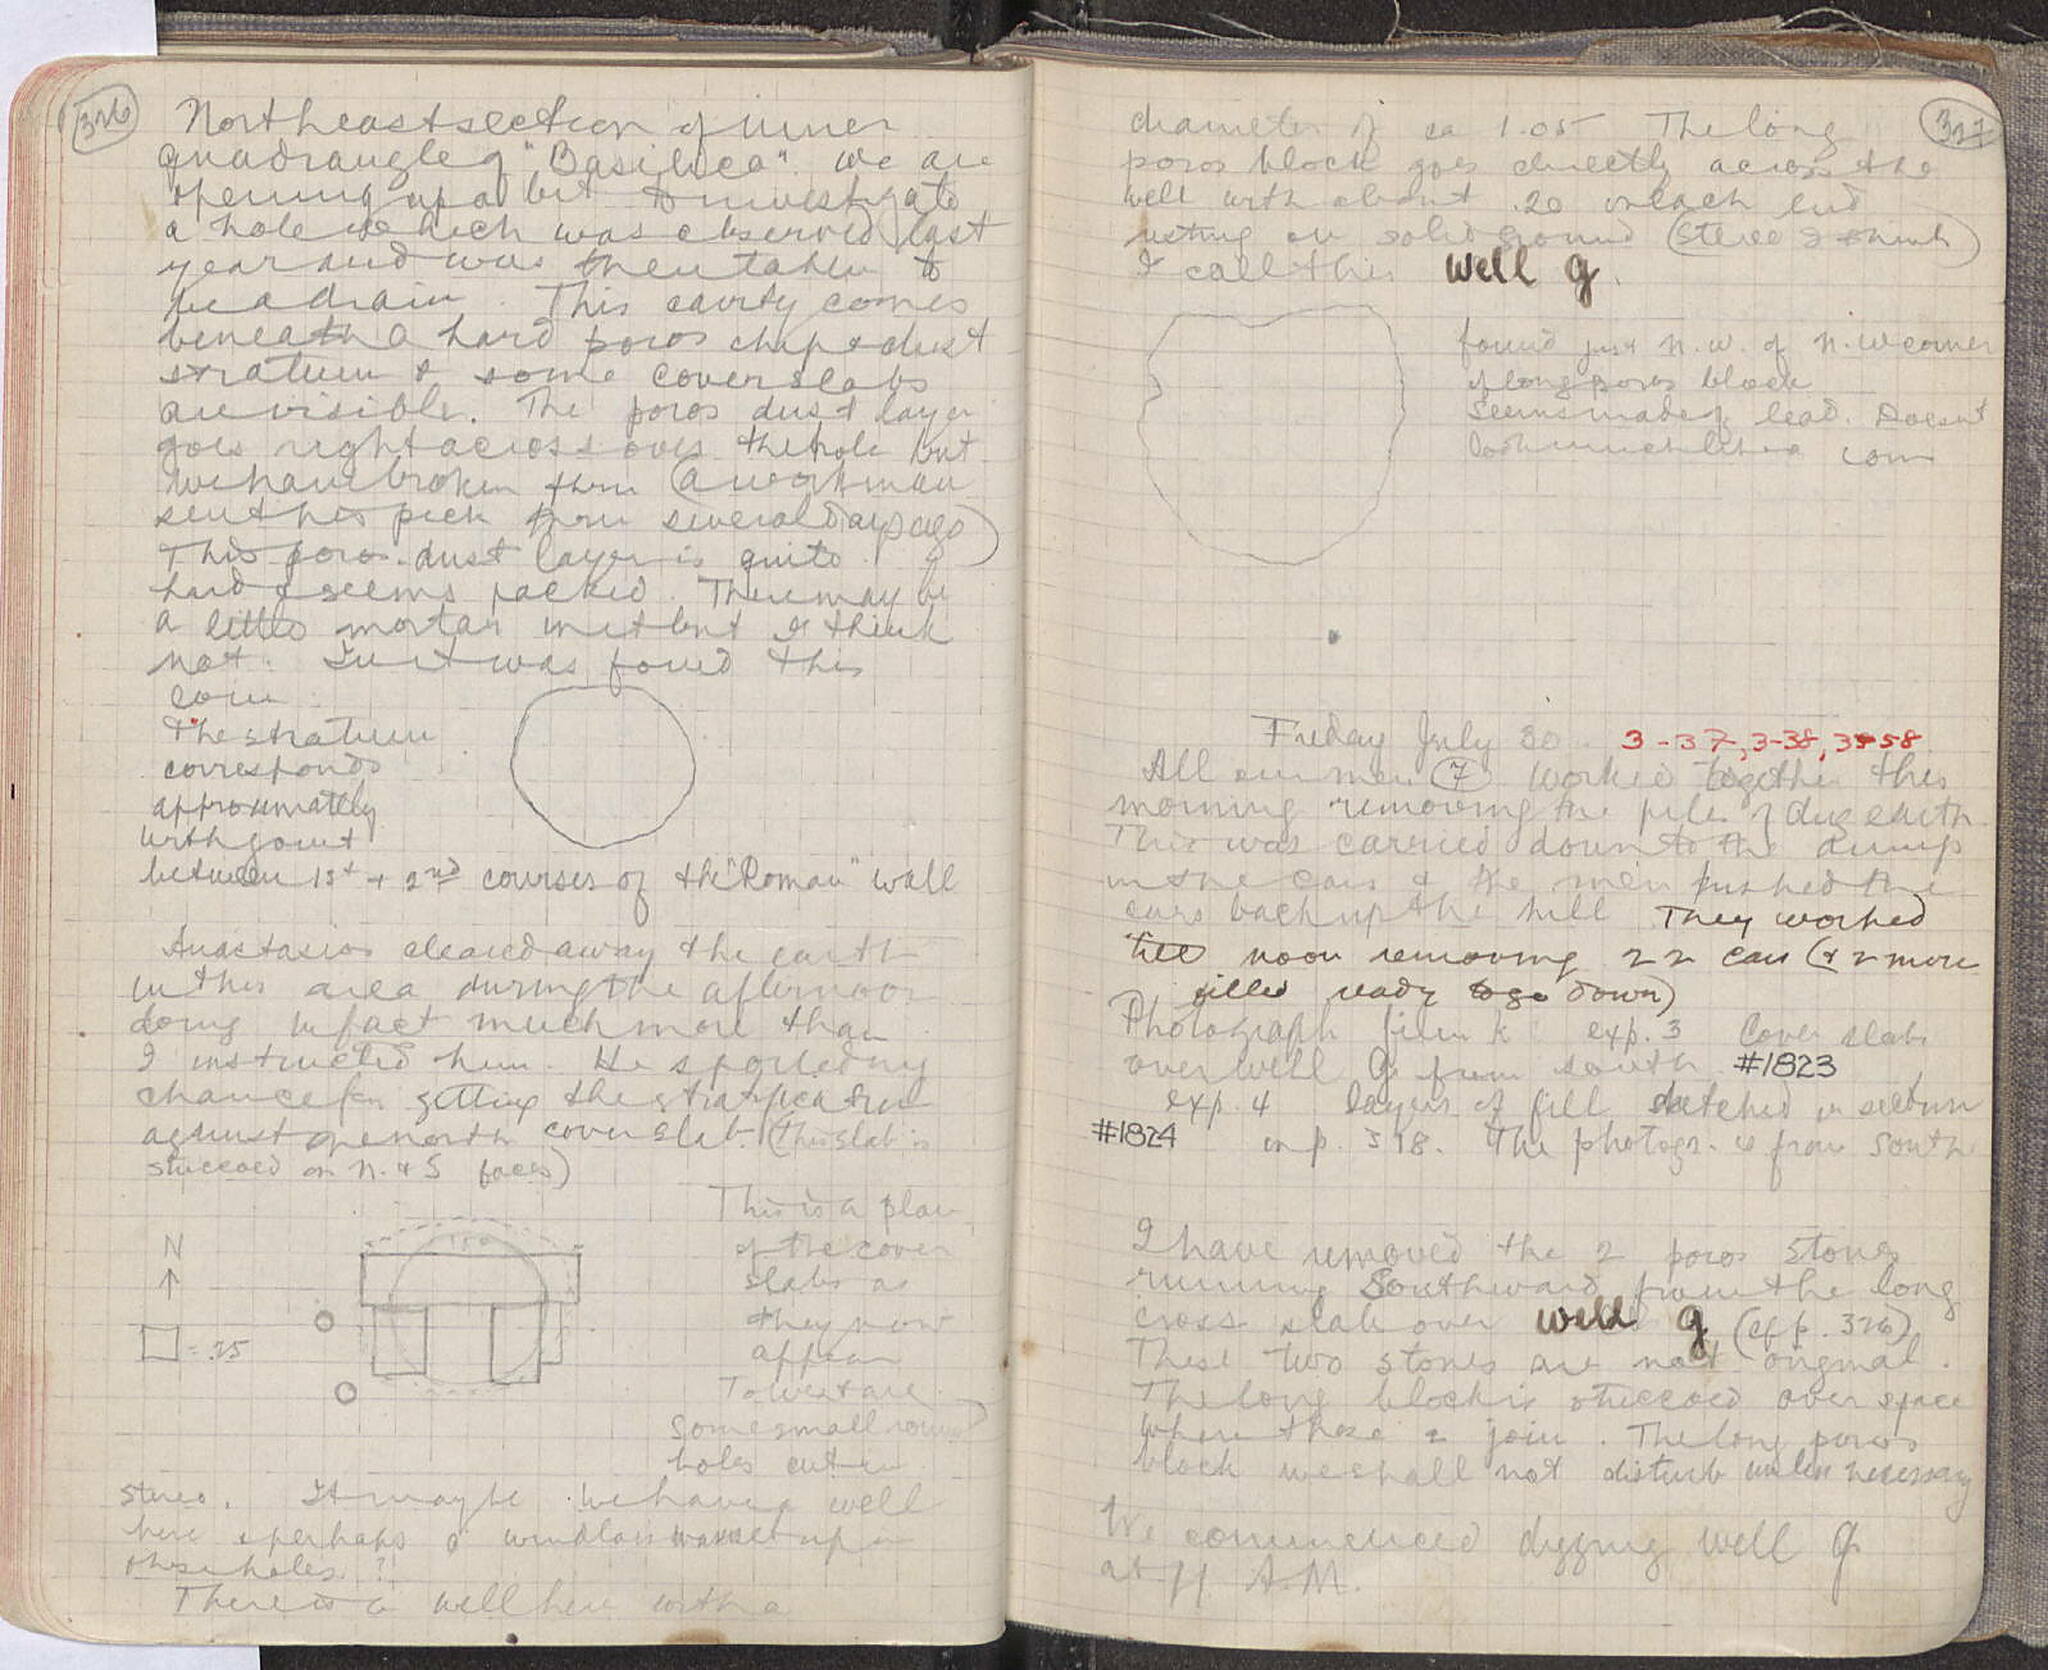 326
Northeast section of inner
quadrangle of "Basilica". We are
opening up a bit to investigate
a hole which was observed last
year and was then taken to
be a drain. This cavity comes
beneath a hard poros chip & dust
stratum & some cover slabs
are visible. The poros dust layer
goes right across over the hole but
we have broken thru (a workman
sent his pick thru several days ago)
This poros dust layer is quite
hard & seems packed. There may be
a little mortar in it but I think
not. In it was found this
coin
The stratum
corresponds
approximately
with joint
between 1st + 2nd courses of the "Roman" wall
Anastasios cleared away the earth
in this area during the afternoon
doing in fact much more than
I instructed him. He spoiled my
chance for getting the stratification
against the north cover slab. (this slab is
stuccoed on N. & S faces)
This is a plan
of the cover
slabs as
they now
appear
N
□ = .25
To west are
some small round
holes cut in
stereo. It may be we have a well
here & perhaps a windlass was set up in
these holes?!
There is a well here with a
327
diameter of ca 1.05 The long
poros block goes directly across the
well with about .20 on each end
resting on solid ground (stereo I think)
I call this well g.
found just N.W. of N.W corner
of long poros block
Seems made of lead. Doesn't
look much like a coin
Friday July 30. 3-37, 3-38, 3-58
All our men (7) worked together this
morning removing the pile of dug earth
This was carried down to the dump
in the cars & the men pushed the
cars back up the hill They worked
till noon removing 22 cars (& 2 more
filled ready to go down)
Photograph film K exp. 3 Cover slabs
over well g from south #1823
exp. 4 layers of fill sketched in section
#1824 on p. 318. The photogr. is from South
I have removed the 2 poros stones
running Southward from the long
cross slab over well g (cf p. 326)
These two stones are not original.
The long block is stuccoed over space
where these 2 join. The long poros
block we shall not disturb unless necessary
We commenced digging well g
at 11 A.M.